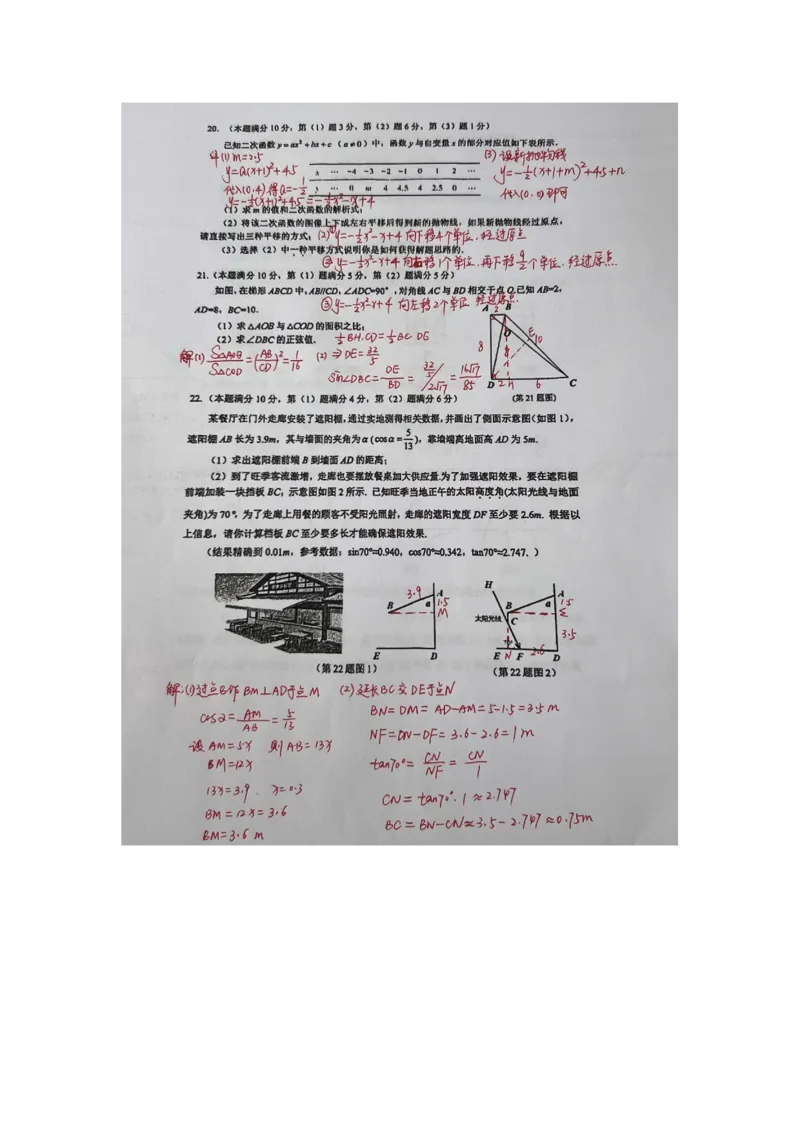 20. (本题满分10分，第（1）题3分，第（2）题6分，第（3）题1分)
已知二次函数 y=ax²+bx+c（a≠0）中，函数 y 与自变量 x 的部分对应值如下表所示.
解(1) m=2.5
(3) 设新抛物线
y=a(x+1)²+4.5
x … -4 -3 -2 -1 0 1 2 …
y=-½(x+1+m)²+4.5+n
代入(0,4)得a=-½
y … 0 m 4 4.5 4 2.5 0 …
代入(0,0)即可
y=-½(x+1)²+4.5=-½x²-x+4
（1）求 m 的值和二次函数的解析式；
（2）将该二次函数的图像上下或左右平移后得到新的抛物线，如果新抛物线经过原点，
请直接写出三种平移的方式；
(2)① y=-½x²-x+4 向下移4个单位.经过原点
（3）选择（2）中一种平移方式说明你是如何获得解题思路的.
② y=-½x²-x+4 向右移1个单位.再下移个单位.经过原点.
21.(本题满分10分，第（1）题满分5分，第（2）题满分5分)
③ y=-½x²-x+4 向左移2个单位 经过原点.
如图,在梯形 ABCD 中,AB//CD,∠ADC=90°,对角线 AC 与 BD 相交于点 O.已知 AB=2,
AD=8，BC=10.
（1）求 △AOB 与 △COD 的面积之比；
（2）求∠DBC 的正弦值.
½BH.CD=½BC DE
解(1) S△AOB/S△COD=(AB/CD)²=1/16
(2) ⇒DE=32/5
sin∠DBC=DE/BD=32/5/2√17=16√17/85
A 2 B
O E
8 8 10
D 2 H 6 C
(第21题图)
22.（本题满分10分，第（1）题满分4分，第（2）题满分6分）
某餐厅在门外走廊安装了遮阳棚,通过实地测得相关数据,并画出了侧面示意图(如图1),
遮阳棚 AB 长为3.9m，其与墙面的夹角为 α (cosα=5/13)，靠墙端离地面高 AD 为5m.
（1）求出遮阳棚前端 B 到墙面 AD 的距离；
（2）到了旺季客流激增，走廊也要摆放餐桌加大供应量.为了加强遮阳效果，要在遮阳棚
前端加装一块挡板 BC，示意图如图2所示. 已知旺季当地正午的太阳高度角(太阳光线与地面
夹角)为70°，为了走廊上用餐的顾客不受阳光照射，走廊的遮阳宽度 DF 至少要2.6m. 根据以
上信息，请你计算挡板 BC 至少要多长才能确保遮阳效果.
（结果精确到0.01m，参考数据：sin70°≈0.940，cos70°≈0.342，tan70°≈2.747.）
3.9 A
B α 1.5
M
E D
H
A
B α 1.5
太阳光线 C E
3.5
E N F 2.6 D
(第22题图1)
(第22题图2)
解:(1)过点B作 BM⊥AD于点M
(2)延长BC交DE于点N
cosα=AM/AB=5/13
BN=DM=AD-AM=5-1.5=3.5 m
设 AM=5x 则 AB=13x
NF=DN-DF=3.6-2.6=1 m
BM=12x
tan70°=CN/NF=CN/1
13x=3.9. x=0.3
CN=tan70°.1≈2.747
BM=12x=3.6
BC=BN-CN≈3.5-2.747≈0.75m
BM=3.6 m